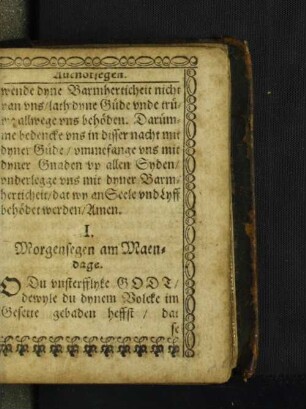 Auendtsegen.
wende dyne Barmherticheit nicht
van vns / lath dyne Güde vnde trü-
we allwege vns behöden. Darüm-
me bedencke vns in disser nacht mit
dyner Güde / vmmefange vns mit
dyner Gnaden vp allen Syden /
vnderlegge vns mit dyner Barm-
herticheit / dat wy an Seele vnd Lyff
behödet werden / Amen.
I.
Morgensegen am Maen-
dage.
O Du vnsterfflyke GODT /
dewyle du dynem Volcke im
Gesette gebaden heffst / dat
se